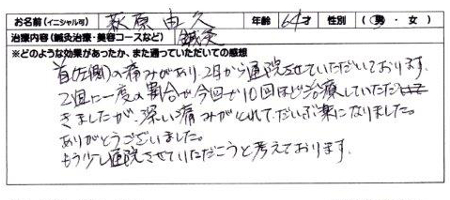 お名前(イニシャル可) 萩原由久 年齢 64才 性別 (男・女)
治療内容(鍼灸治療・美容コースなど) 鍼灸
※どのような効果があったか、また通っていただいての感想
首(左側)の痛みがあり、2月から通院させていただいております。
2週に一度の割合で今回で10回ほど治療していただ
きましたが、深い痛みがとれて、だいぶ楽になりました。
ありがとうございました。
もう少し通院させていただこうと考えております。